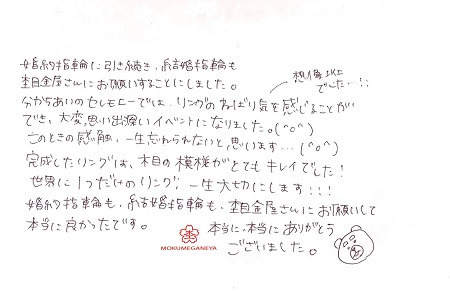 婚約指輪に引き続き、結婚指輪も
杢目金屋さんにお願いすることにしました。
想像以上
でした…!!
分かちあいのセレモニーでは、リングのねばり気を感じることが
でき、大変思い出深いイベントになりました。(^o^)
このときの感触、一生忘れられないと思います…(^o^)
完成したリングは、木目の模様がとてもキレイでした!
世界に1つだけのリング、一生大切にします!!!
婚約指輪も、結婚指輪も、杢目金屋さんにお願いして
本当に良かったです。
本当に、本当にありがとう
ございました。
MOKUMEGANEYA